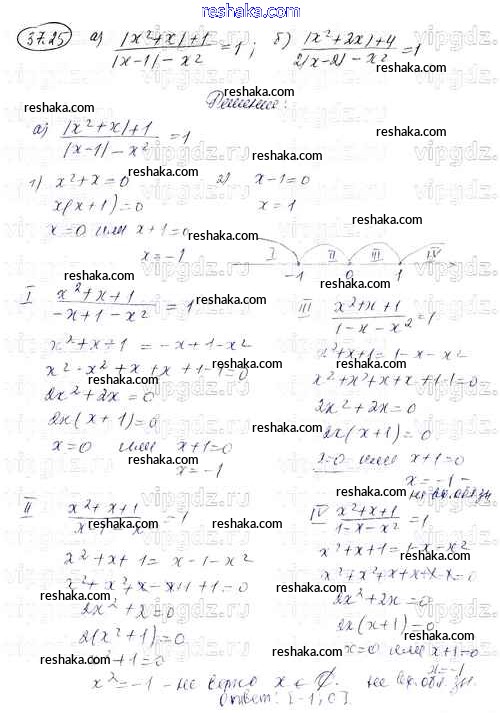 www.reshaka.com
37.25 а) |x²+x|+1 / |x-1|-x² = 1; б) |x²+2x|+4 / 2|x-2|-x² = 1
Решение:
а) |x²+x|+1 / |x-1|-x² = 1
1) x²+x=0
x(x+1)=0
x=0 или x+1=0
x=-1
2) x-1=0
x=1
I II III IV
-1 0 1
I x²+x+1 / -x+1-x² = 1
x²+x+1 = -x+1-x²
x²+x²+x+x+1-1=0
2x²+2x=0
2x(x+1)=0
x=0 или x+1=0
x=-1
III x²+x+1 / 1-x-x² = 1
x²+x+1=1-x-x²
x²+x²+x+x+1-1=0
2x²+2x=0
2x(x+1)=0
x=0 или x+1=0
x=-1 -
II x²+x+1 / 1
x²+x+1 = x-1-x²
x²+x²+x-x+1+1=0
2(x²+1)=0
x²+1=0
x²=-1 - не верно x ∈ ∅.
IV x²+x+1 / 1-x-x² = 1
x²+x+1=1-x-x²
2x²+2x=0
2x(x+1)=0
x=0 или x+1=0
x=-1
Ответ: [-1; 0].
reshaka.com
vipgdz.ru